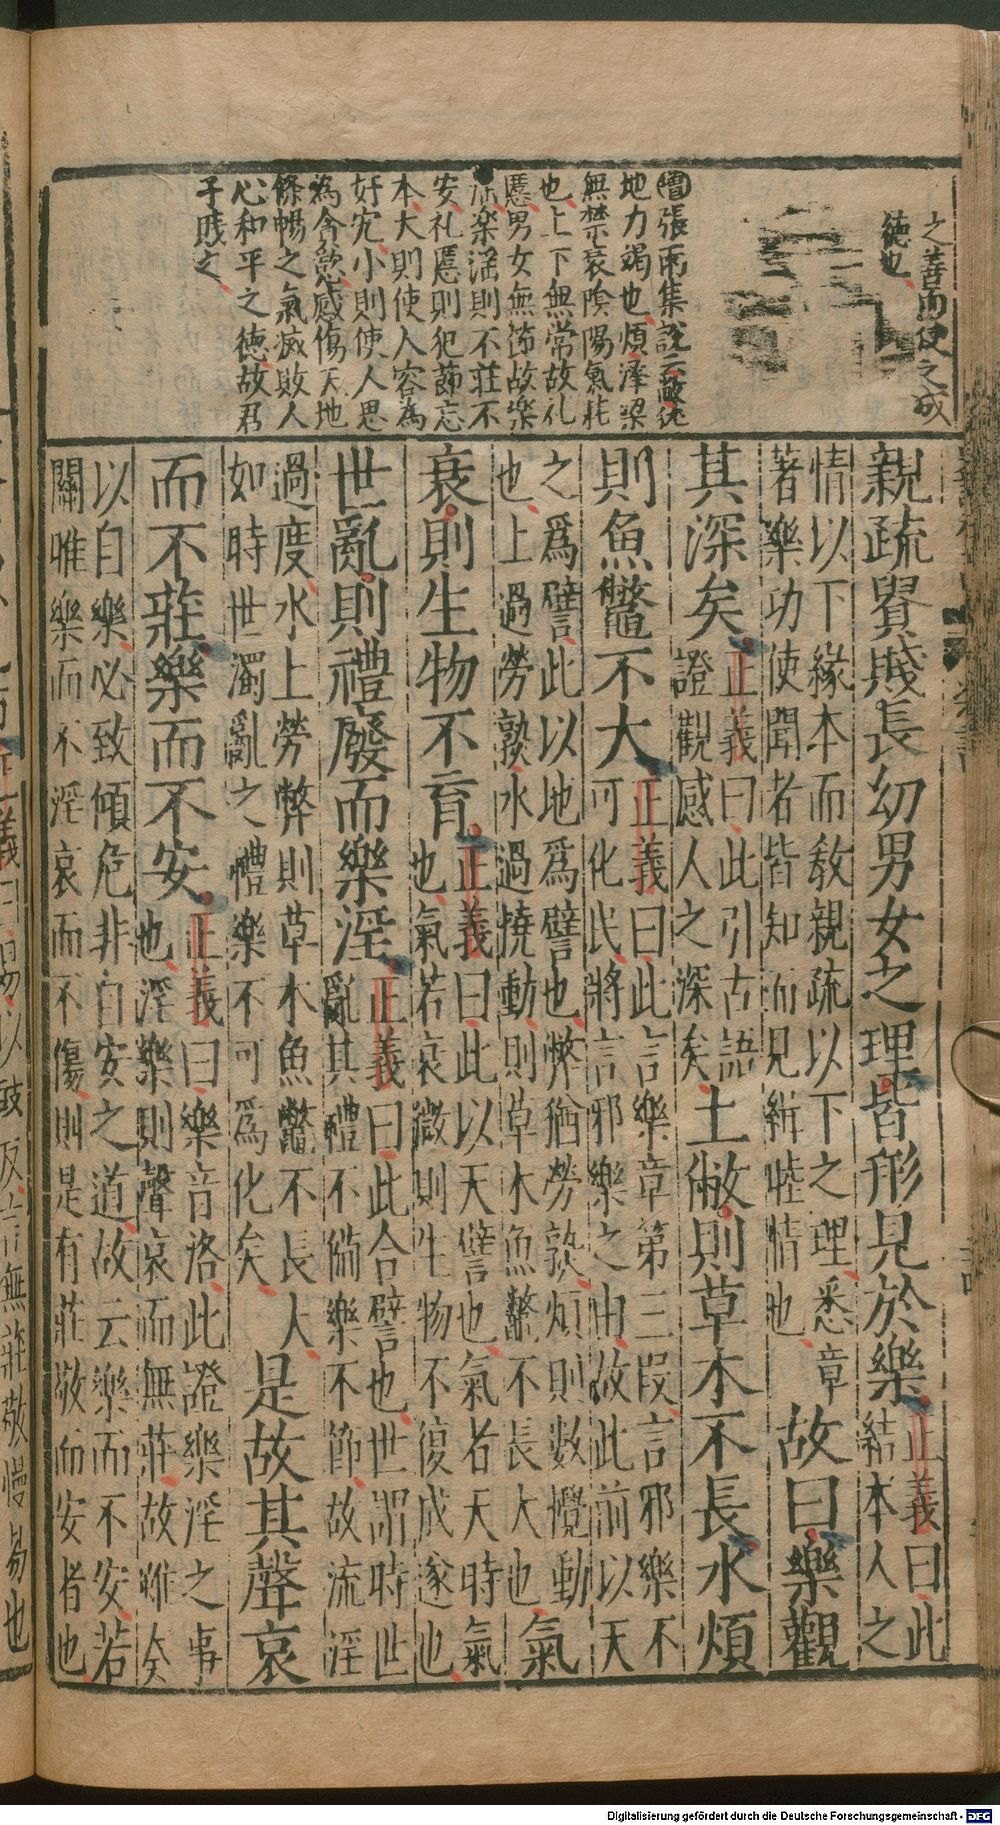 之善而使之成
德也
增張雨集說云敝純
地力竭也煩澤梁
無禁衰陰陽氣耗
也上下無常故礼
慝男女無節故樂
淫樂淫則不莊不
安礼慝則犯節忘
本大則使人容為
奸宄小則使人思
為貪慾感傷天地
條暢之氣滅敗人
心和平之德故君
子賤之
親疏貴賤長幼男女之理皆形見於樂
正義曰此
結本人之
情以下緣本而教親疏以下之理悉章
著樂功使聞者皆知而見緝睦情也
故曰樂觀
其深矣
正義曰此引古語
證觀感人之深矣
土敝則草木不長水煩
則魚鼈不大
正義曰此言樂章第三段言邪樂不
可化民將言邪樂之由故此前以天
之爲譬此以地爲譬也弊猶勞敦煩則數攪動
也上過勞敦水過撓動則草木魚鼈不長大也
氣
衰則生物不育
正義曰此以天譬也氣者天時氣
也氣若衰微則生物不復成遂也
世亂則禮廢而樂淫
正義曰此合譬也世謂時世
亂其禮不備樂不節故流淫
過度水上勞弊則草木魚鼈不長大
如時世濁亂之禮樂不可爲化矣
是故其聲哀
而不莊樂而不安
正義曰樂音洛此證樂淫之事
也淫樂則聲哀而無莊故雖矣
以自樂必致傾危非自安之道故云樂而不安若
關雎樂而不淫哀而不傷則是有莊敬而安者也
Digitalisierung gefördert durch die Deutsche Forschungsgemeinschaft - DFG